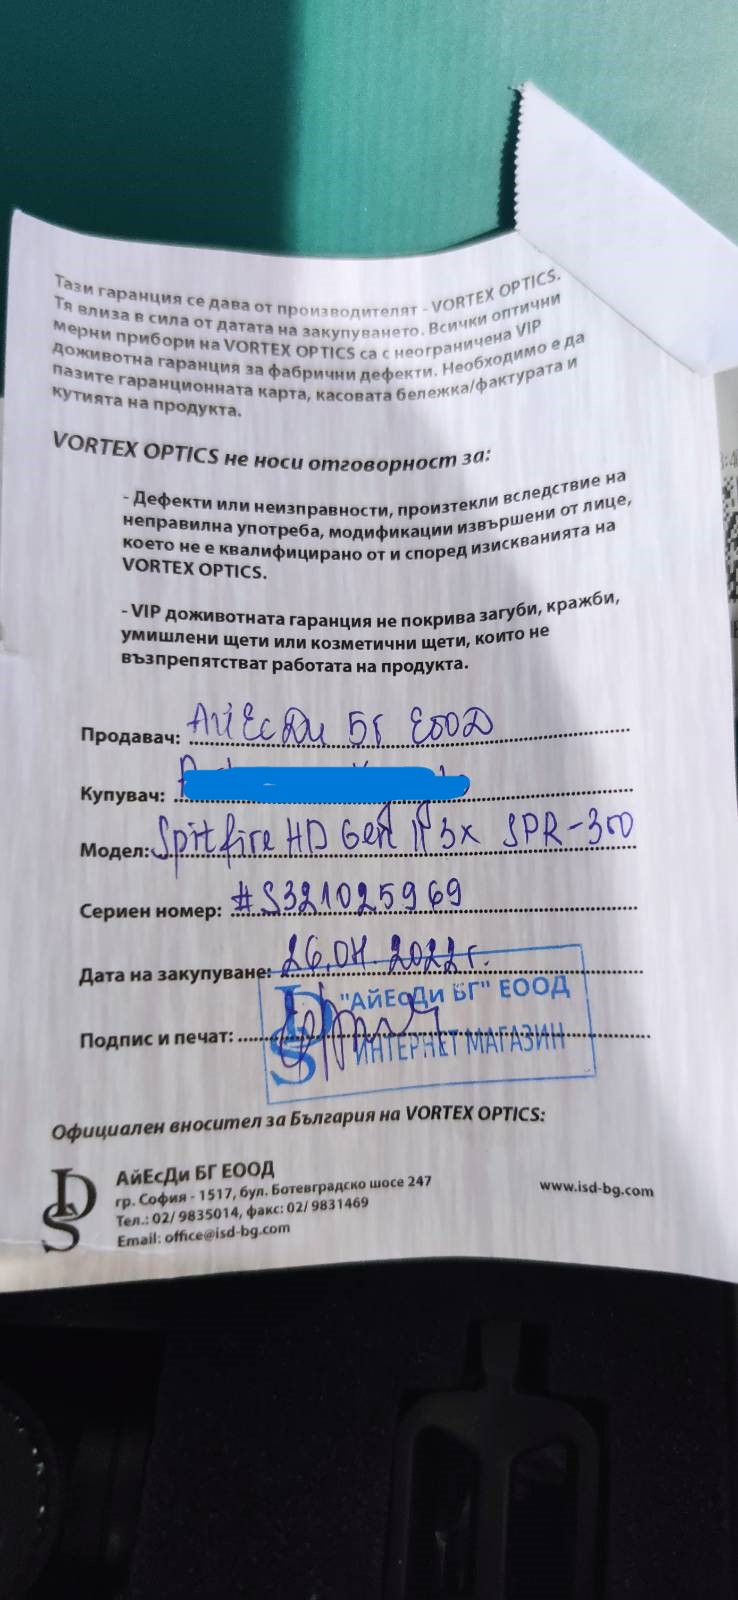 Тази гаранция се дава от производителят - VORTEX OPTICS.
Тя влиза в сила от датата на закупуването. Всички оптични
мерни прибори на VORTEX OPTICS са с неограничена VIP
доживотна гаранция за фабрични дефекти. Необходимо е да
пазите гаранционната карта, касовата бележка/фактурата и
кутията на продукта.
VORTEX OPTICS не носи отговорност за:
- Дефекти или неизправности, произтекли вследствие на
неправилна употреба, модификации извършени от лице,
което не е квалифицирано от и според изискванията на
VORTEX OPTICS.
- VIP доживотната гаранция не покрива загуби, кражби,
умишлени щети или козметични щети, които не
възпрепятстват работата на продукта.
Продавач: АйЕсДи БГ ЕООД
Купувач:
Модел: Spitfire HD Gen II 3x SPR-300
Сериен номер: #S321025969
Дата на закупуване: 26.04.2022г.
"АйЕсДи БГ" ЕООД
Подпис и печат:
ИНТЕРНЕТ МАГАЗИН
Официален вносител за България на VORTEX OPTICS:
АйЕсДи БГ ЕООД
гр. София - 1517, бул. Ботевградско шосе 247
www.isd-bg.com
Тел.: 02/ 9835014, факс: 02/ 9831469
Email: office@isd-bg.com